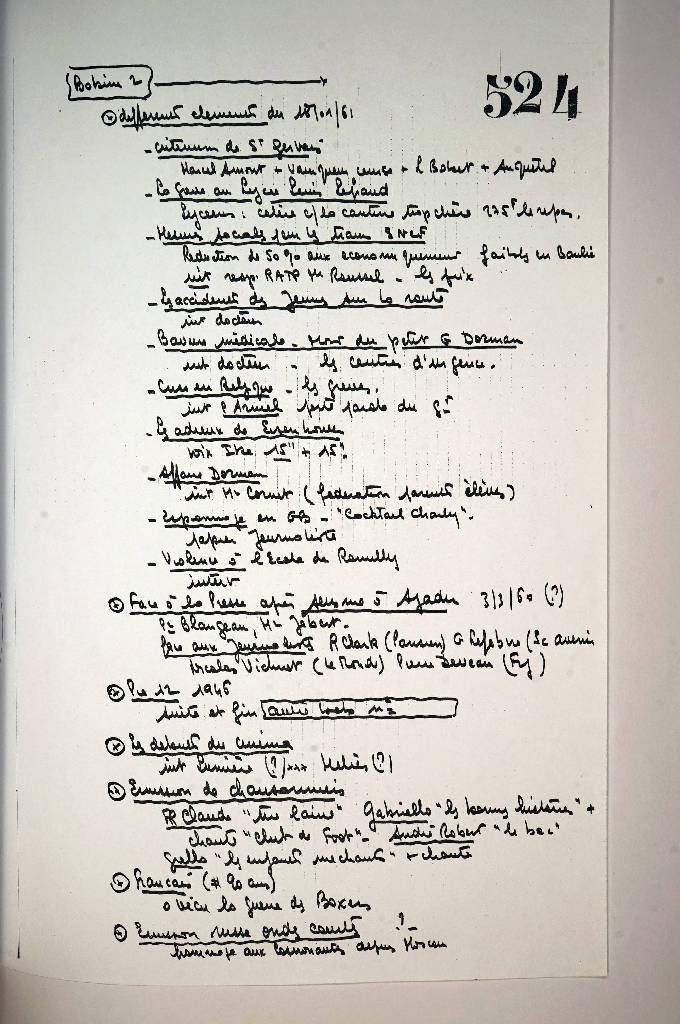 Bobine 2
524
différents elements du 18/01/61
- criterium de St Gervais
Marcel Amont + vainqueur + L Bobet + Anquetil
- La Greve au Lycée Louis
Lyceens : colère c/ la cantine trop chère 275F le repas.
- Mesures sociales pour les trains SNCF
Reduction de 50% aux economiquement faibles en Banlieue
int resp. RATP Mr Roussel - les prix
- Les accidents des Jeunes sur la route
int docteur
- Bavure médicale - Mort du petit G Dorman
int docteur - les centres d'urgence.
- Crise en Belgique - les greves.
int porte parole du gt
- Les adieux de Eisenhower
voix Ike 15" + 15".
- Affaire Dorman
int Mr Cornet (federation parents élèves)
- Espionnage en GB - "Cocktail Charly".
papier Journaliste
- Violence à l'Ecole de Romilly
interv
Face à la Presse après seisme à Agadir 3/3/60 (?)
Pr Blangeau, Mr Jobert.
face aux Journalistes R Clark (Parisien) G Lefebvre (Sc avenir
Nicolas Vichnet (Le Monde) Pierre (Fig)
1946
suite et fin autre
Les debuts du cinéma
int Lumière (?) xxx Meliès (?)
Emission de chansonniers
PR Claude "Gabriello "les bonnes histoires" +
chante "Club de Foot" - André Robert "le bac"
Grello "les enfants mechants" + chante
Francais (# 90 ans)
a vécu la guerre des Boxers
Emission russe ondes courtes ?
hommage aux Cosmonautes depuis Moscou